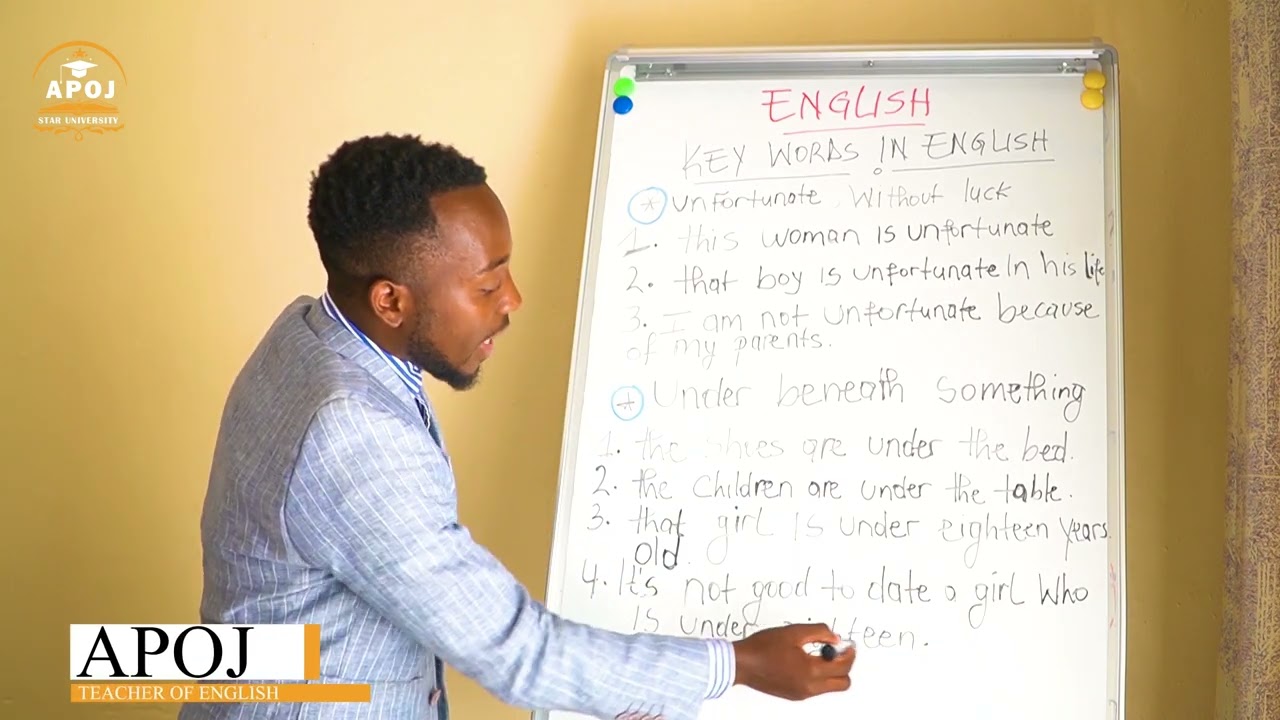 APOJ
STAR UNIVERSITY
ENGLISH
KEY WORDS IN ENGLISH
* Unfortunate without luck
1. this woman is unfortunate
2. that boy is unfortunate in his life
3. I am not unfortunate because
of my parents.
* Under beneath something
1. the shoes are under the bed.
2. the children are under the table.
3. that girl is under eighteen years
old.
4. It's not good to date a girl who
is under teen.
APOJ
TEACHER OF ENGLISH